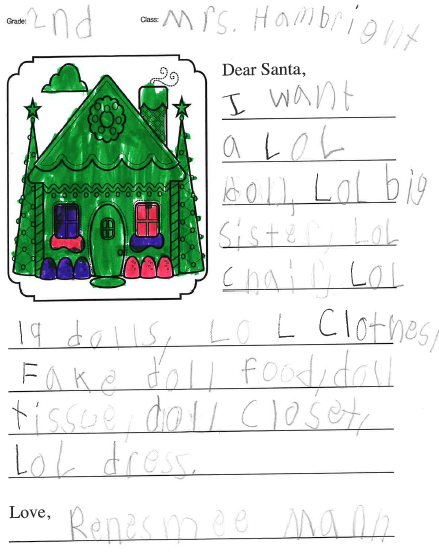 Grade: 2nd Class: Mrs. Hambright
Dear Santa,
I want
a LOL
doll, LOL big
sister, LOL
chair, LOL
19 dolls, LOL Clothes,
Fake doll food, doll
tissue, doll closet,
LOL dress.
Love, Renesmee Mann